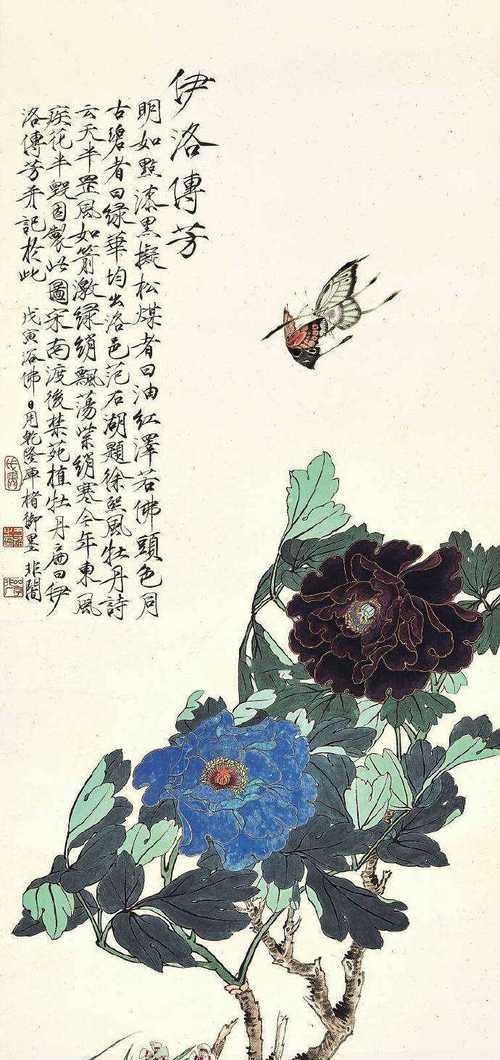 伊洛傳芳
明如點漆黑擬松煤者曰油紅澤若佛頭色同
古碧者曰緑華均出洛邑范石湖題徐熙風牡丹詩
云天半罡風如箭激緑綃飄蕩紫綃寒今年東風
疾花半毀因製此圖宋南渡後禁苑植牡丹扁曰伊
洛傳芳并記於此 戊寅浴佛日用乾隆庫楮御墨 非闇